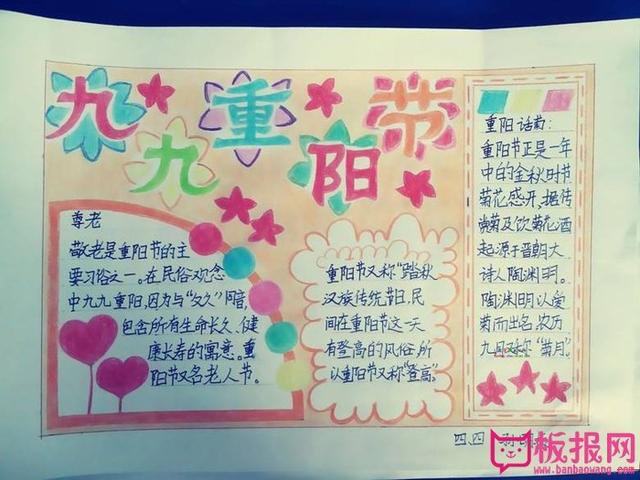 九九重阳节
尊老
敬老是重阳节的主
要习俗之一。在民俗观念
中九九重阳,因为与"久久"同音,
包含所有生命长久、健
康长寿的寓意。重
阳节又名老人节。
重阳节又称"踏秋"
汉族传统节日,民
间在重阳节这一天
有登高的风俗,所
以重阳节又称"登高"。
重阳话菊:
重阳节正是一年
中的金秋时节
菊花盛开,据传
赏菊及饮菊花酒
起源于晋朝大
诗人陶渊明。
陶渊明以爱
菊而出名,农历
九月又称"菊月"。
四.四
板报网
www.banbaowang.com